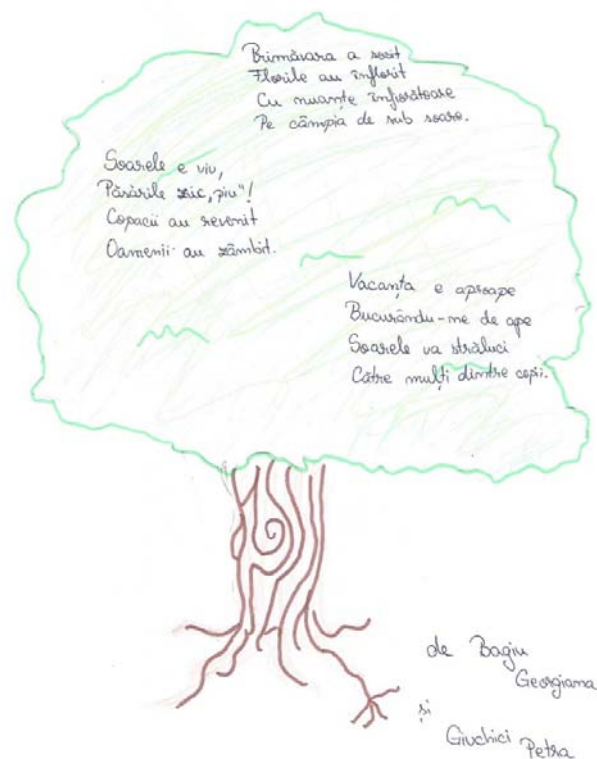 Primăvara a sosit
Florile au înflorit
Cu nuanțe înfiorătoare
Pe câmpia de sub soare.
Soarele e viu,
Păsările zic „piu"!
Copacii au revenit
Oamenii au zâmbit.
Vacanța e aproape
Bucurându-me de ape
Soarele va străluci
Către mulți dintre copii.
de Bagiu
Georgiana
și
Giuchici
Petra